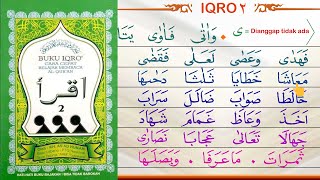 IQRO ٢
ى = Dianggap tidak ada
وَاَنٰى فَاَوٰى
BUKU IQRO'
CARA CEPAT
BELAJAR MEMBACA
AL-QUR'AN
اقرأ
2
فَهَدٰى وَعَصٰى لَعَلٰى فَقَضٰى
مَعَاشًا خَطَايَا ثَلَاثًا
خَالَطَا صَوَابَ ضَالَلَ سَرَابَ
اَخَذَ وَعَاظَ غَمَامَ شَهَادَ
جَهَالَا تَعَالٰى عَجَابَا نَصَارٰى
ثَمَرَاتَ . مَاعَرَفَا . وَيَصَلَهَا